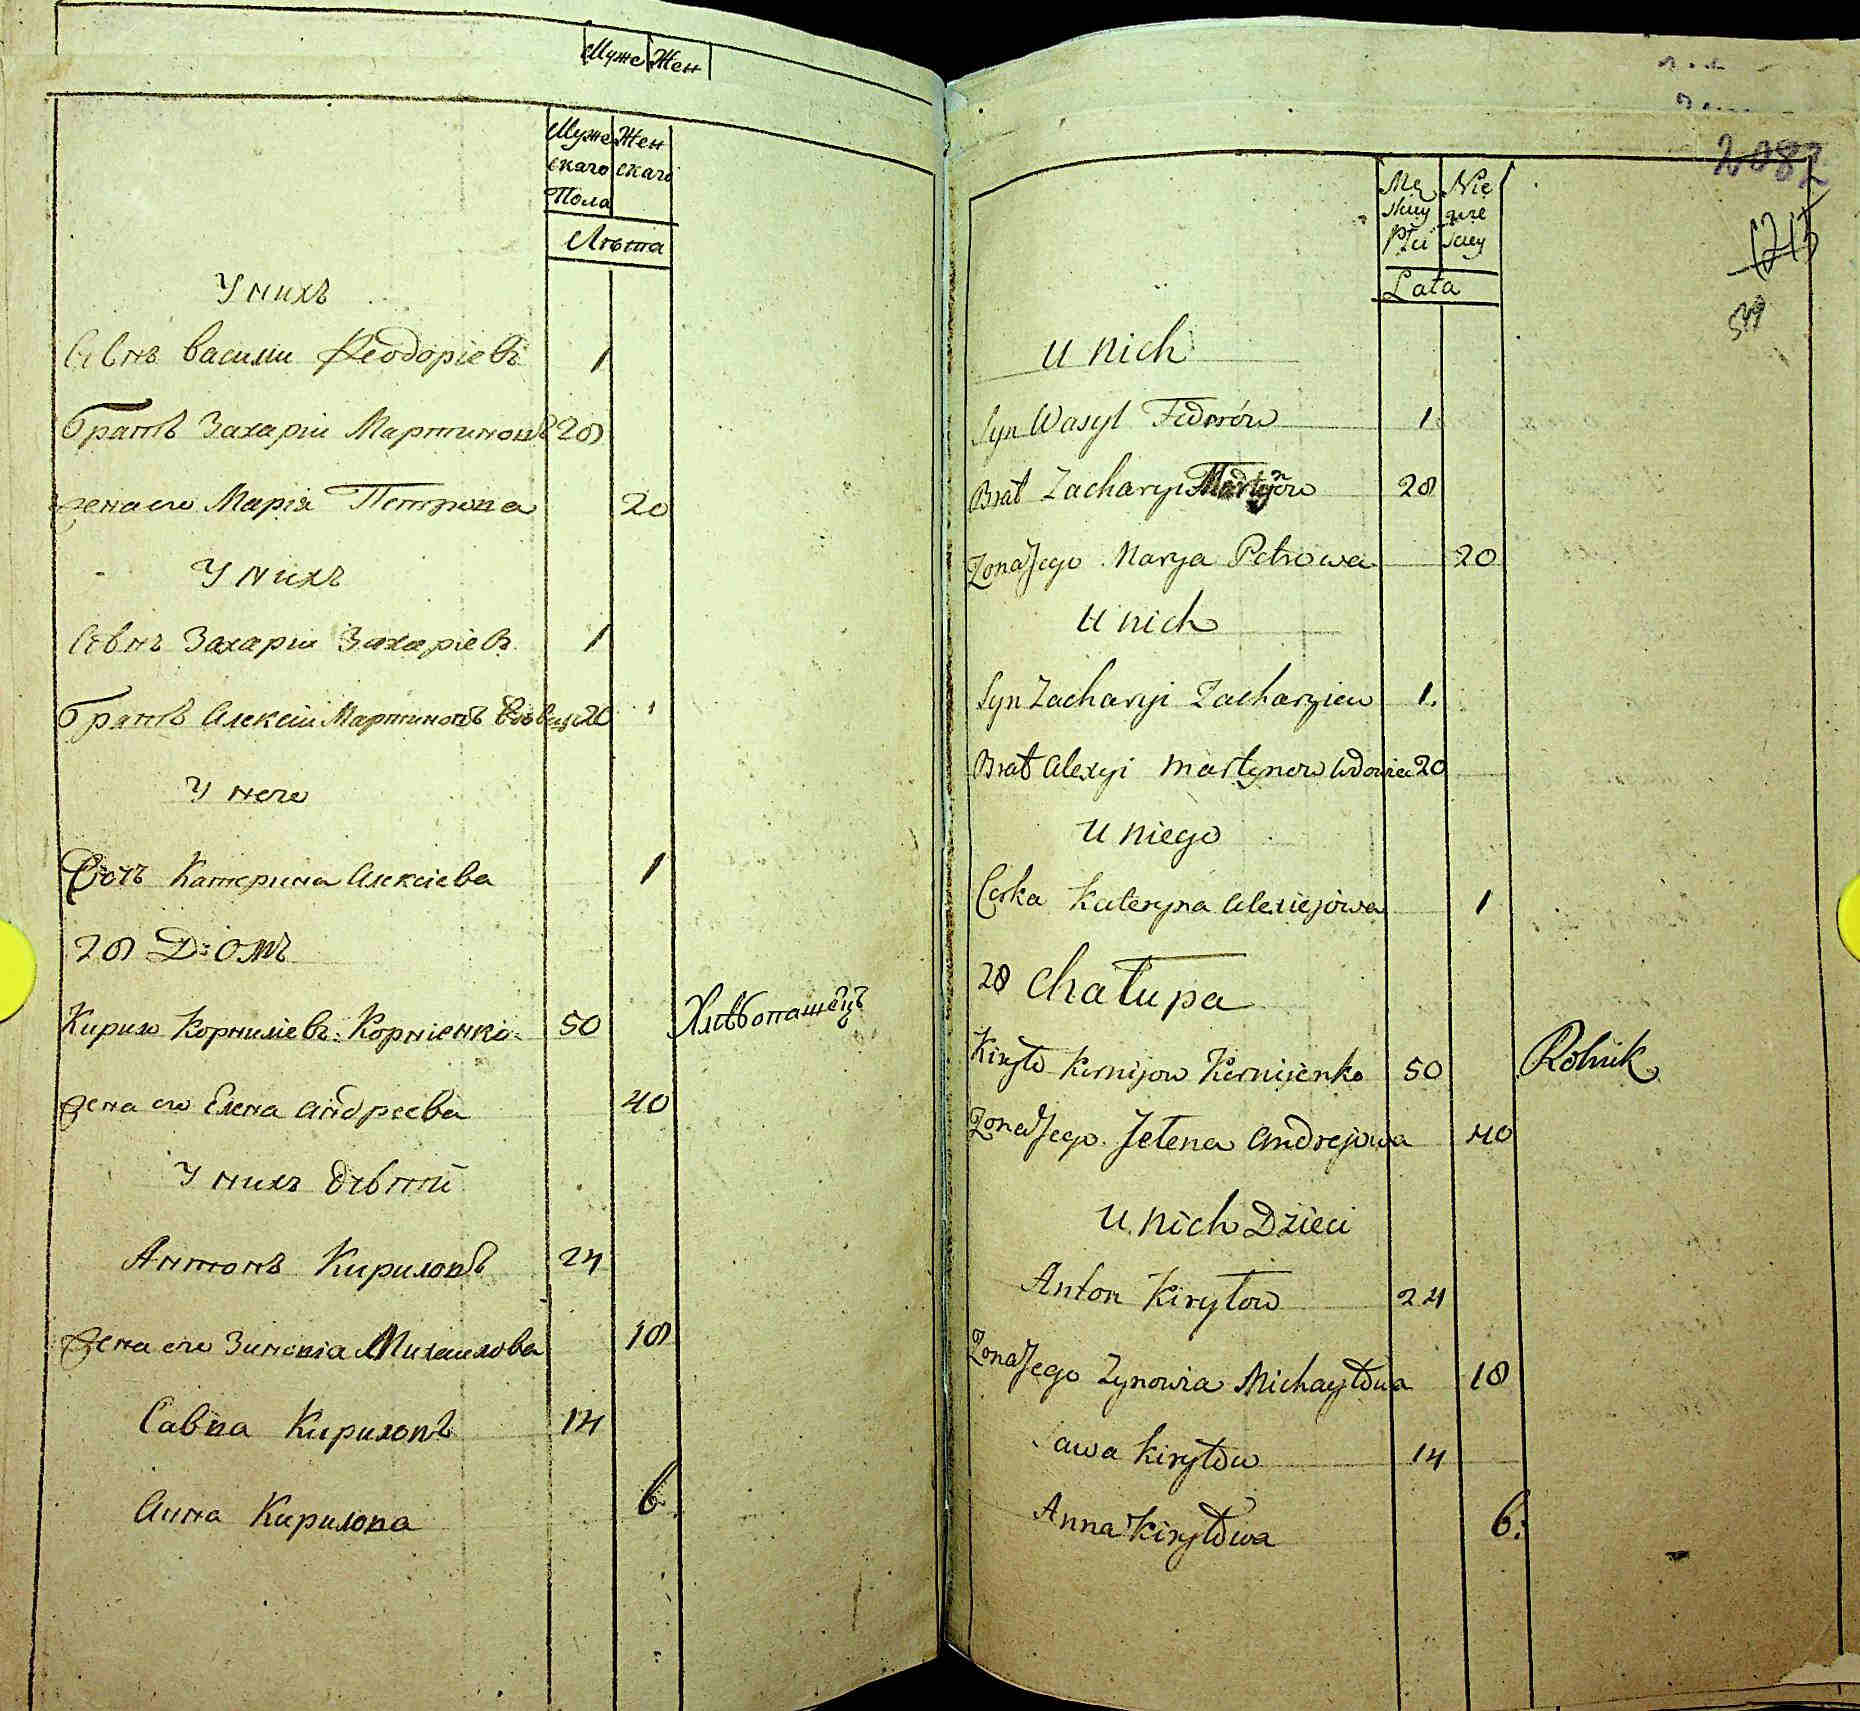 Муже Жен
Муже Жен
скаго скаго
Пола
Лѣта
У нихъ
Сынъ василий Феодоріевъ 1
братъ Захарій Мартиновъ 28
жена его Марія Петрова 20
У нихъ
Сынъ Захарій Захаріев 1
братъ Алексій Мартиновъ вдовец 20
У него
Дочь Катерина Алексіева 1
28 Домъ
Кирило Корниліевъ Корніенко 50 Хлѣбопашецъ
жена его Елена андреева 40
У нихъ дѣтій
Антонъ Кириловъ 24
жена его Зиновіа Михаилова 18
Савва Кириловъ 14
Анна Кирилова 6
2082
1215
549
Mę Nie
skiey
Płci
Lata
u nich
Syn Wasyl Fedorów 1
Brat Zacharyi Martynów 28
Zona Jego Marya Petrowa 20
u nich
Syn Zacharyi Zacharyiew 1.
Brat alexyi martynow wdowiec 20
u niego
Corka Kateryna alexiejowa 1
28 Chałupa
Kiryło Kornijow Kornijenko 50 Rolnik
Zona Jego Jelena andrejowa 40
u nich Dzieci
Anton Kiryłow 24
Zona Jego Zynowia Michayłowa 18
awa kiryłow 14
Anna Kiryłowa 6.